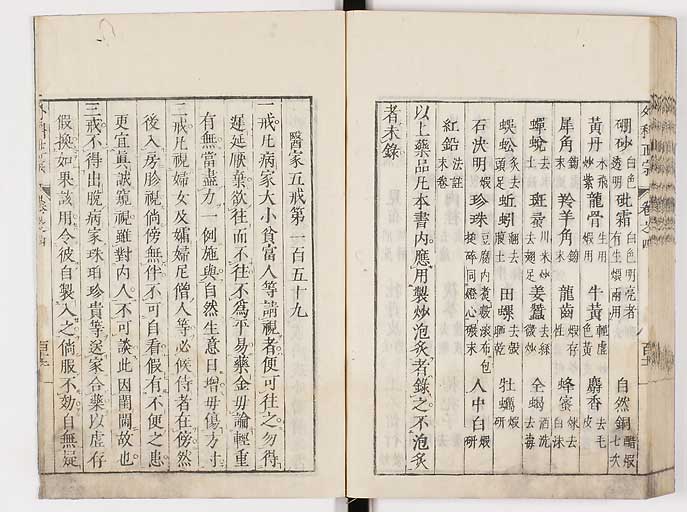 硼砂白色透明 砒霜白色明亮者有生煅兩用 自然銅醋煅七次
黃丹水飛炒紫 龍骨生用煅用 牛黃輕虛色黃 麝香去毛皮
犀角鎊末 羚羊角鎊末 龍齒煅存性 蜂蜜
蟬蛻去土 斑蝥川米炒去翅足 姜蠶去絲微炒 全蝎酒洗去毒
蜈蚣炙去頭足 蚯蚓 田螺去靨晒乾 牡蠣煅研
石決明煅 珍珠豆腐內煮 人中白煅研
紅鉛法註末卷
以上藥品凡本書內應用製炒泡炙者錄之不泡炙
者未錄
醫家五戒第一百五十九
一戒凡病家大小貧富人等請視者便可往之勿得
遲延厭棄欲往而不往不爲平易藥金毋論輕重
有無當盡力一例施與自然生意日增毋傷方寸
二戒凡視婦女及孀婦尼僧人等必候侍者在傍然
後入房胗視倘傍無伴不可自看假有不便之患
更宜眞誠窺視雖對內人不可談此因閨閫故也
三戒不得出脫病家珠珀珍貴等送家合藥以虛存
假換如果該用令彼自製入之倘服不効自無疑